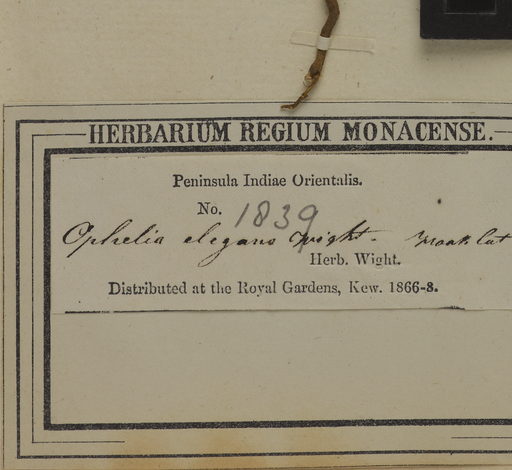 HERBARIUM REGIUM MONACENSE.
Peninsula Indiae Orientalis.
No. 1839
Ophelia elegans Wight.
Herb. Wight.
Distributed at the Royal Gardens, Kew. 1866-8.